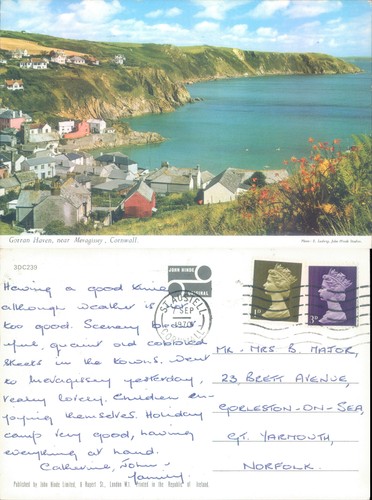 Gorran Haven, near Mevagissey, Cornwall.
Photo: E. Ludwig, John Hinde Studios.
3DC239
Having a good time
although weather is not
too good. Scenery beaut-
iful, quaint old cobbled
streets in the towns. Went
to Mevagissey yesterday,
really lovely. Children en-
joying themselves. Holiday
camp very good, having
everything at hand.
Catherine, John &
family
JOHN HINDE
ORIGINAL
ST AUSTELL
7 SEP
1970
1D
3D
MR. MRS B. MAJOR,
23, BRETT AVENUE,
GORLESTON-ON-SEA,
GT. YARMOUTH,
NORFOLK.
Published by John Hinde Limited, 6 Rupert St., London W.1. Printed in the Republic of Ireland